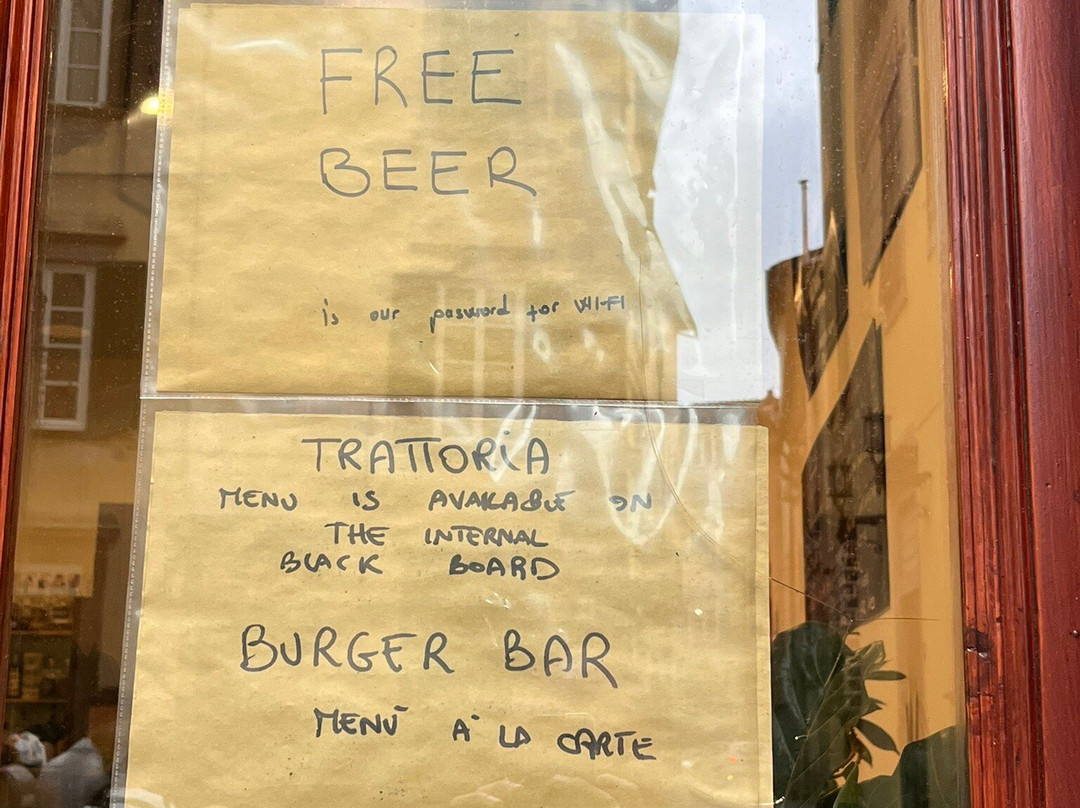 FREE
BEER
is our password for WI-FI
TRATTORiA
MENU IS AVAILABLE ON
THE INTERNAL
BLACK BOARD
BURGER BAR
MENÙ A' LA CARTE